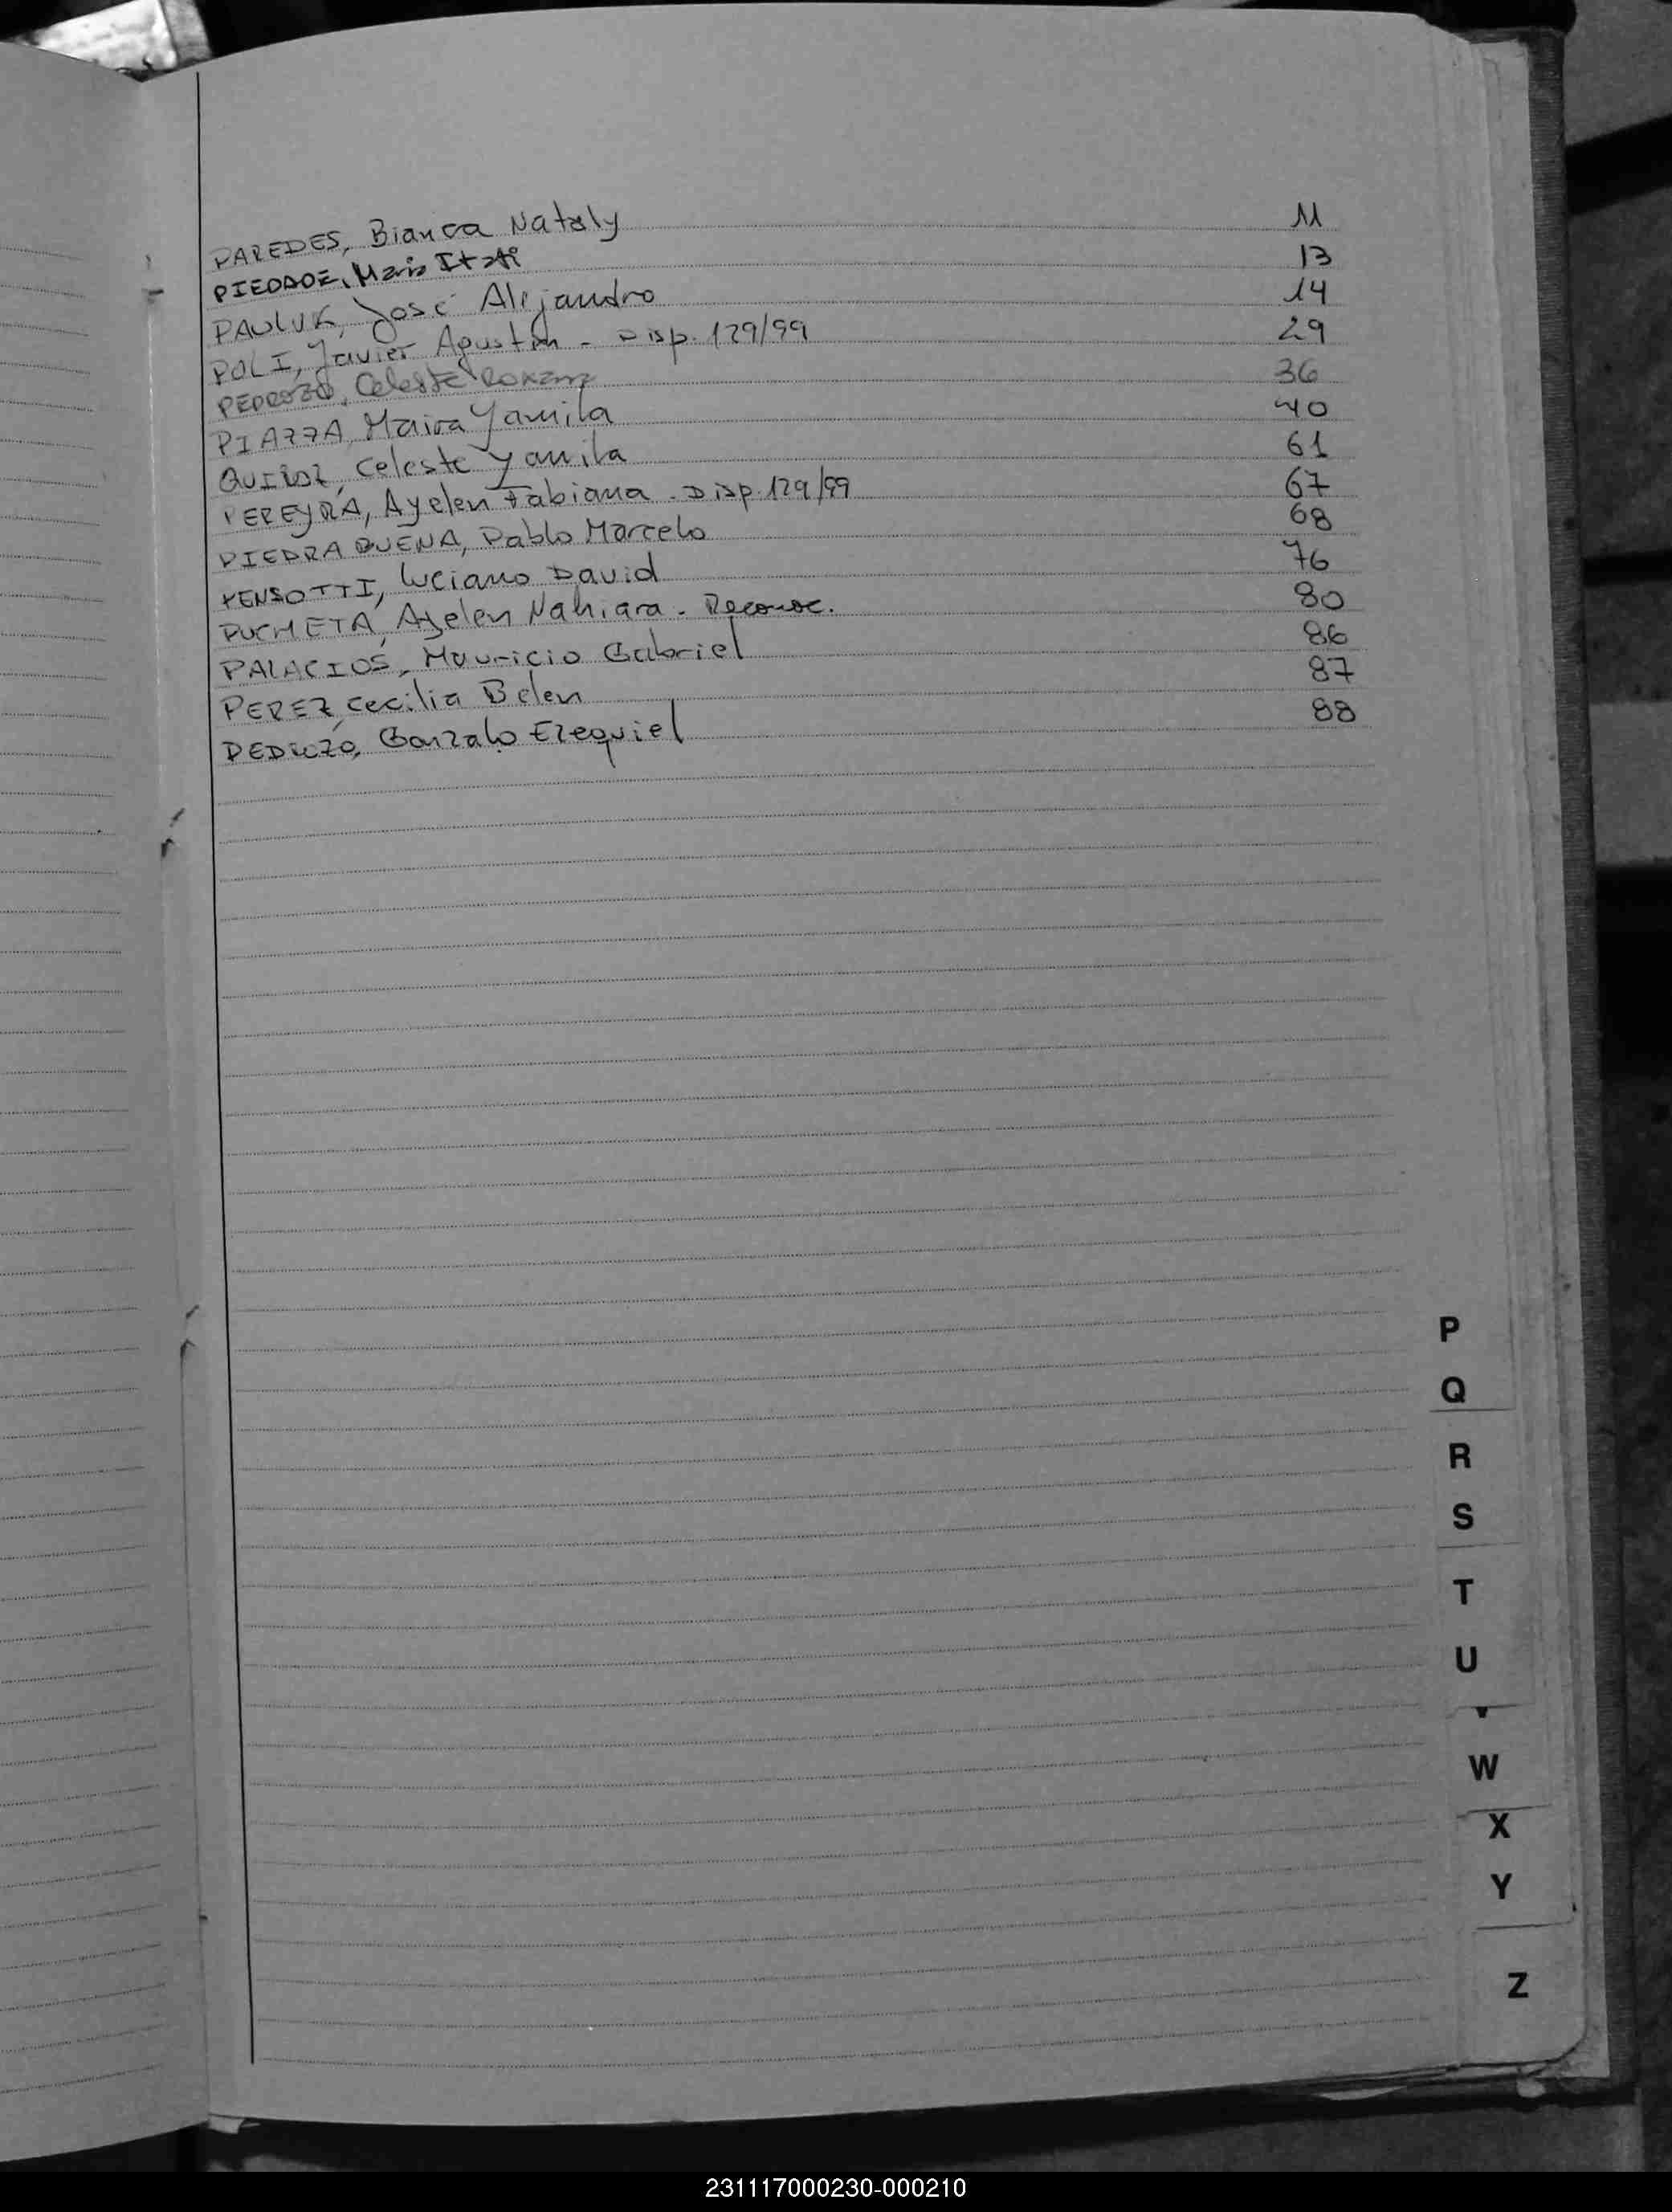 PAREDES, Bianca Nataly 11
PIEDADE, Maria Itati 13
PAULUK, José Alejandro 14
POLI, Javier Agustin - Disp. 129/99 29
PEDROZO, Celeste Roxana 36
PIAZZA, Maira Yamila 40
QUIROZ, Celeste Yamila 61
PEREYRA, Ayelen Fabiana - Disp. 129/99 67
PIEDRABUENA, Pablo Marcelo 68
PENSOTTI, Luciano David 76
PUCHETA, Ayelen Nahiara - Reconoc. 80
PALACIOS, Mauricio Gabriel 86
PEREZ, Cecilia Belen 87
PEDROZO, Gonzalo Ezequiel 88
P
Q
R
S
T
U
V
W
X
Y
Z
231117000230-000210